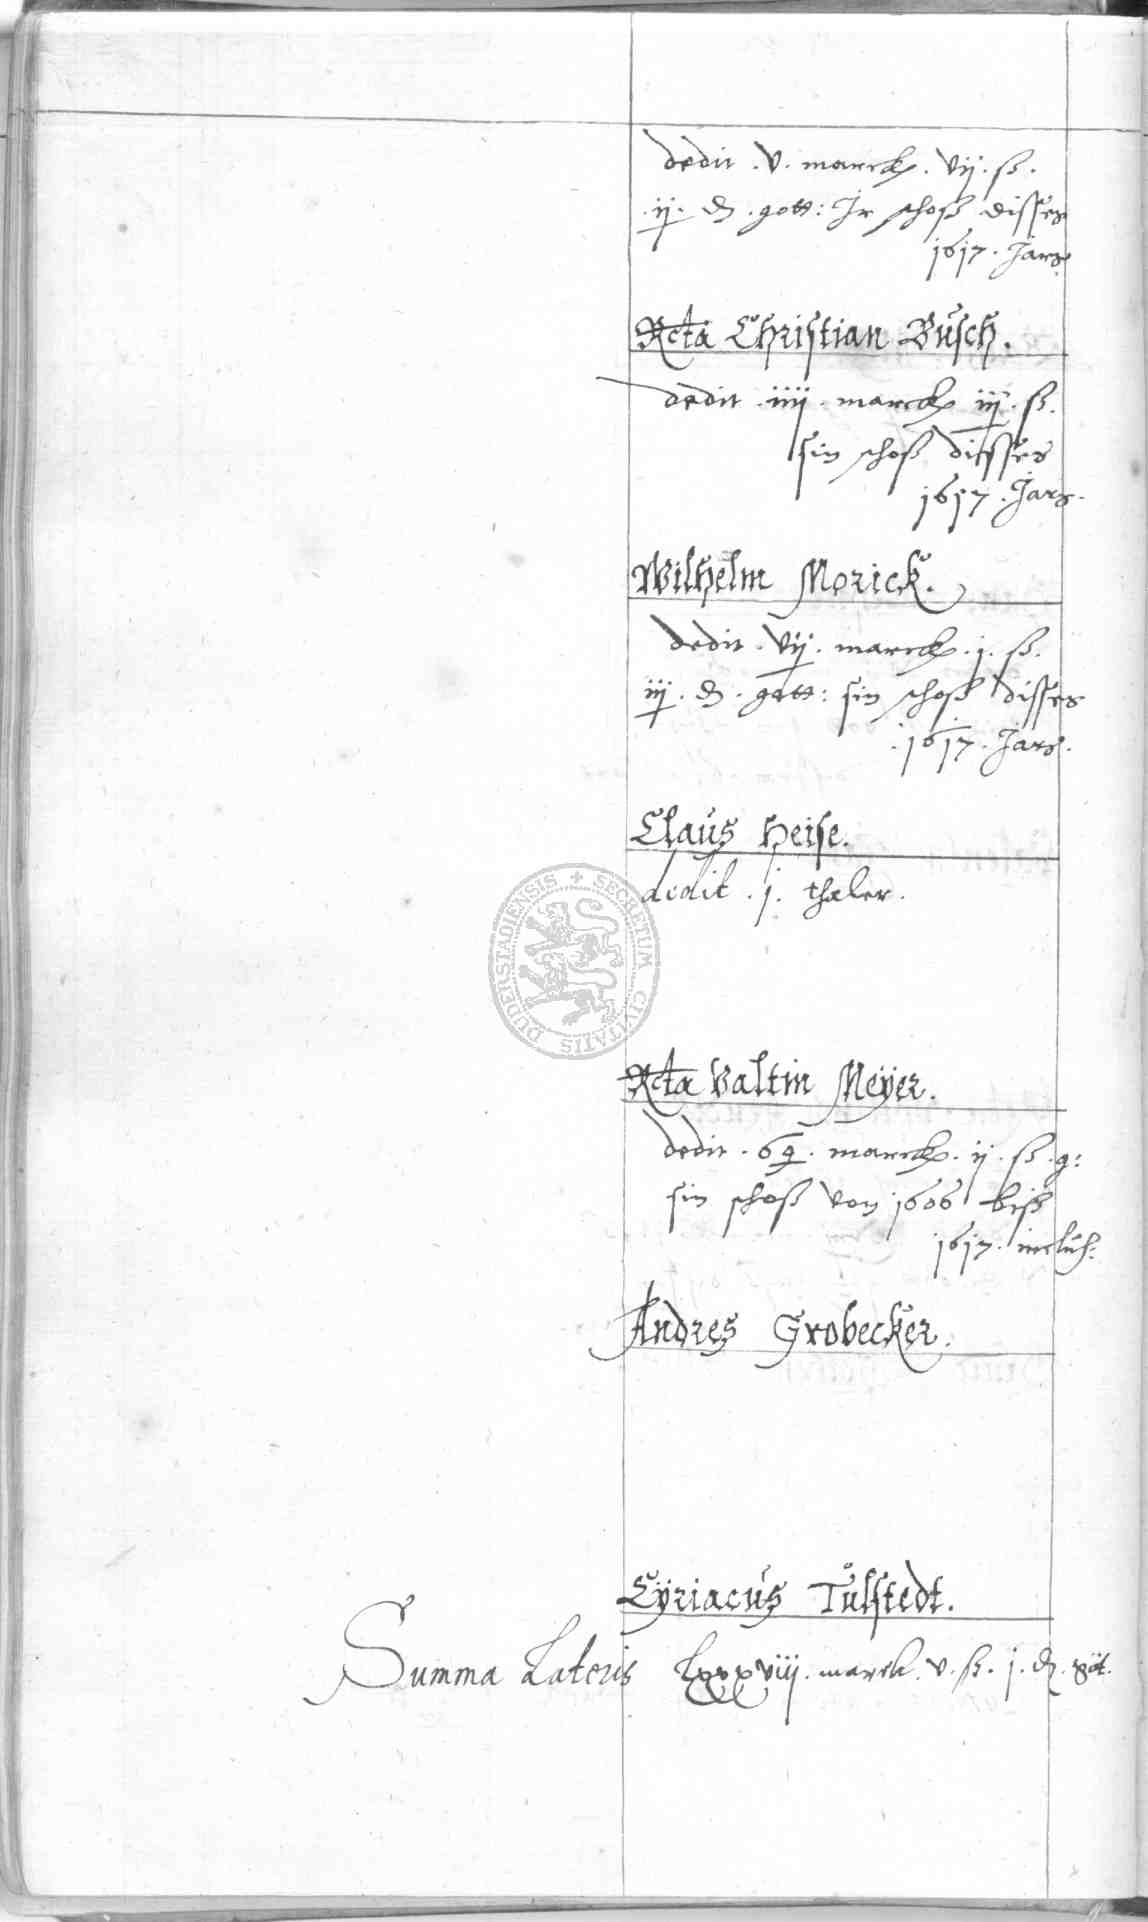 dedit . v . marck . vij . ß .
. ij . ₰ . gott : Jr schoß disses
1617 . Jars .
Rcta Christian Büsch .
dedit . iiij . marck iij . ß .
sin schoß disses
1617 . Jars .
Wilhelm Morick .
dedit . vij . marck . j . ß .
iij . ₰ . gott : sin schoß disses
. 1617 . Jars .
Claus Heise .
dedit . j . thaler .
DUDERSTADIENSIS + SECRETUM CIVITATIS
Rcta Valtin Meÿer .
dedit . marck . ij . ß . g :
sin schoß von 1606 biß
1617 . inclus :
Andres Grobecker .
Cÿriacus Tulstedt .
Summa Lateris lxxxviij . marck . v . ß . j . ₰ . göt .